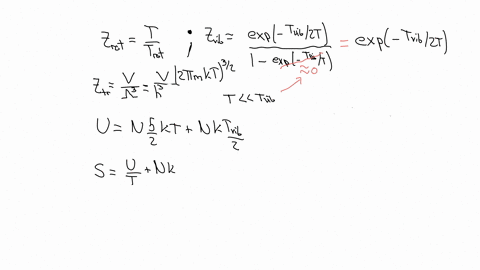 Z_rot = T/T_rot ; Z_vib = exp(-T_vib/2T) / (1 - exp(-T_vib/T)) = exp(-T_vib/2T)
≈0
Z_tr = V/Λ³ = V/h³ (2πmkT)^3/2 T << T_vib
U = N 5/2 kT + Nk T_vib/2
S = U/T + Nk